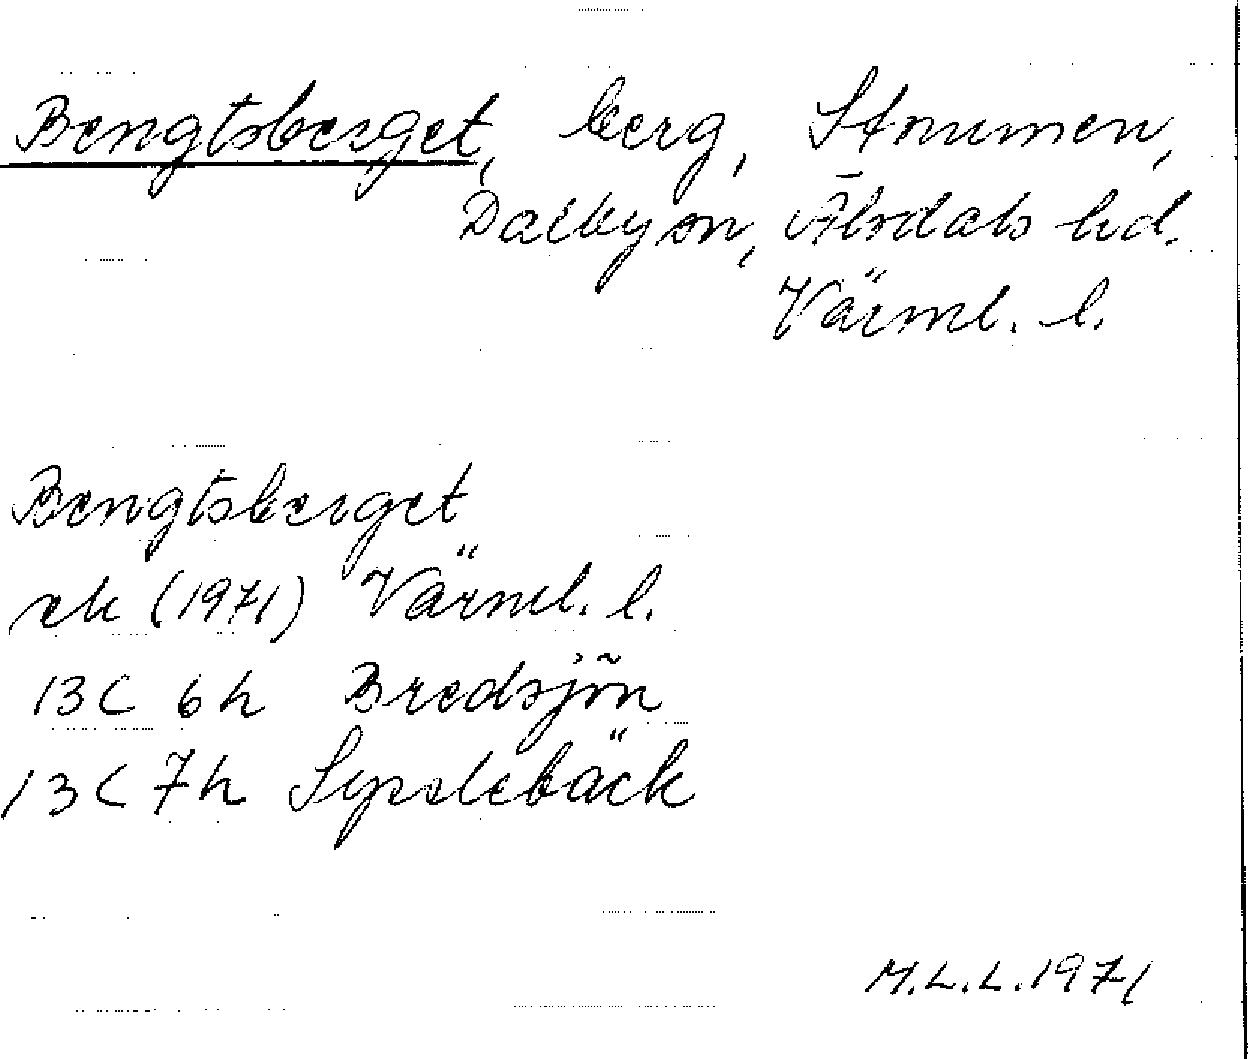 Bengtsberget, berg, Strunmen,
Dalby sn, Älvdals hd.
Värml. l.
Bengtsberget
ek (1971) Värml. l.
13C 6h Bredsjön
13C 7h Sysslebäck
M.L.L. 1971